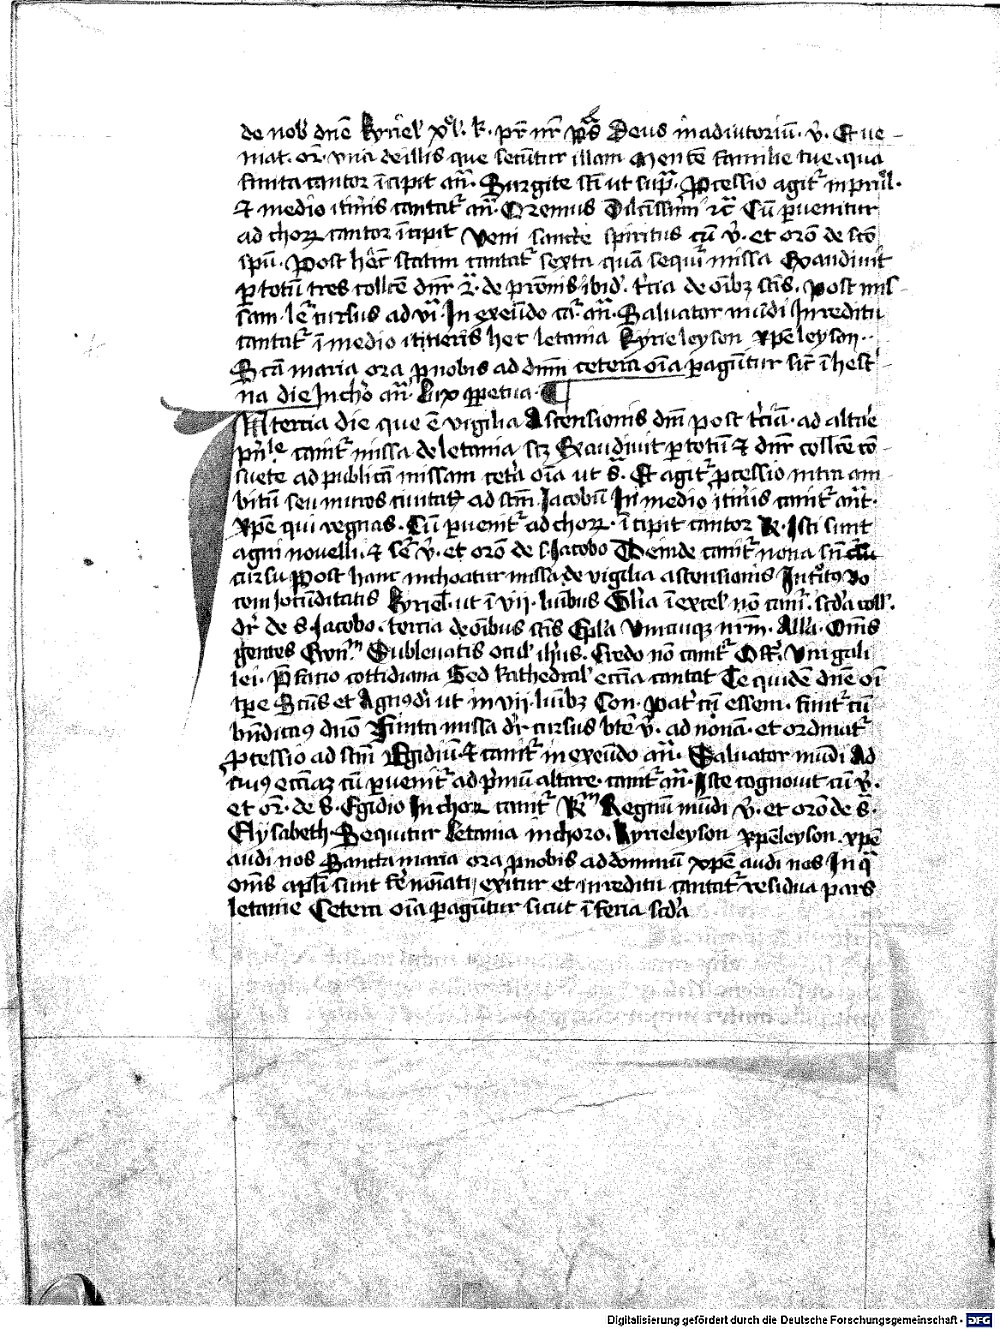 de nob̄ dn̄e kyriel xp̄l. k. pr̄ nr̄ p̄s Deus in adiutoriū. v̄. Et ue-
niat. or̄. vna de illis que secūtur illam Mentē familie tue. qua
finita cantor īcipit an̄. Surgite sc̄i ut sup̄. P̄cessio agit̄ in
Et medio itin̄is cantat̄ an̄. Oremus Dilc̄issimi rc̄ Cū puenitur
ad chorꝝ cantor īcipit Veni sancte spiritus cū v̄. et or̄oe de sc̄o
spū. Post hec statim cantat̄ sexta quā sequit̄ missa Exaudiuit
p totū tres collc̄e dn̄r de ibid̄. t̄cia de oībꝫ sc̄is. Post mis-
sam cursus ad vi. In exeūdo ca̅r an̄. Saluator mūdi In reditu
cantat̄ ī medio itineris hec letania Kyrieleyson xp̄eleyson.
Sc̄a maria ora p nobis ad dn̄m cetera oīa paguntur sic̄ ī hest̄
na die In choro an̄. Lux ppetua.
In tercia die que ē vigilia Ascensionis dn̄i post t̄ciā. ad altare
canit̄ missa de letania scꝫ Exaudiuit p totū Et dn̄r collc̄e cō
suete ad publicā missam cet̄a oīa ut s̄. Et agit̄ p̄cessio intra am
bitū seu muros ciuitat̄ ad sc̄m Jacobū In medio itin̄is canit̄ an̄.
Xp̄e qui regnas. Cū puenit̄ ad chorꝝ. īcipit cantor R. Isti sunt
agni nouelli. Et v̄. et or̄oe de s. Jacobo Deinde canit̄ nona sn̄ cū
cursu Post hanc inchoatur missa de vigilia ascensionis Introitꝰ Vo
cem Jocūditatis Kyriel. ut ī vij. luībus Gl̄ia ī excel̄ nō canit̄. sc̄da coll̄.
dr̄ de s. Jacobo. tercia de oībus sc̄is Ep̄la Vnicuiqꝫ nr̄m. All̄a. Om̄s
gentes Ewn̄ Subleuatis ocul̄ ih̄us. Credo nō canit̄ Off̄. Viri gali
lei. P̄fatio cottidiana Sed kathedral̄ ecc̄ia cantat Te quidē dn̄e oī
tp̄e Sc̄us et Agnꝰ dī ut in vij. luībꝫ Con. Pat̄ cū essem. finit̄ cū
bn̄dicamꝰ dn̄o Finita missa dr̄ cursus bt̄e v̄. ad nonā. et ordinat̄
p̄cessio ad sc̄m Egidiū. Et canit̄ in exeūdo an̄. Saluator mūdi Ad
cuiꝰ ecc̄iaꝫ cū puenit̄ ad p̄mū altare. canit̄ an̄. Iste cognouit cū v̄.
et or̄. de s. Egidio In chorꝝ canit̄ R̄ Regnū mūdi v̄. et or̄oe de s̄.
Elysabeth. Sequitur Letania in choro. Kyrieleyson xp̄eleyson. xp̄e
audi nos Sancta maria ora p nobis ad dominū xp̄e audi nos In q̄
om̄s apl̄i sunt noīati exitur et in reditu cantat̄ residua pars
letanie Cetera oīa paguntur sicut ī feria sc̄da
Digitalisierung gefördert durch die Deutsche Forschungsgemeinschaft - DFG